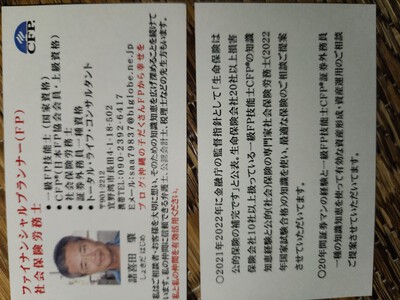 CFP®
ファイナンシャルプランナー(FP)
社会保険労務士
・一級FP技能士(国家資格)
・CFP®(日本FP協会会員・上級資格)
・社会保険労務士
・証券外務員一種資格
・トータル・ライフ・コンサルタント
諸喜田 肇
しょきだ はじめ
宜野湾市長田4-18-502
携帯TEL:090-2392-6417
Eメール:saa79837@biglobe.ne.jp
ブログ:沖縄の子だくさんFPから幸せを
私の仲間を有効活用ください。
○2021年2022年に金融庁の監督指針として「生命保険は
公的保険の補完です」と公表。生命保険会社20社以上損害
保険会社10社以上扱っている一級FP技能士CFP®の知識
知恵経験と公的(社会)保険の専門家社会保険労務士(2022
年国家試験合格)の知識を使い、最適な保険のご相談ご提案
させていただきます。
○20年間証券マンの経験と一級FP技能士CFP®証券外務員
一種の知識知恵を使って有効な資産形成・資産運用のご相談
ご提案させていただきます。